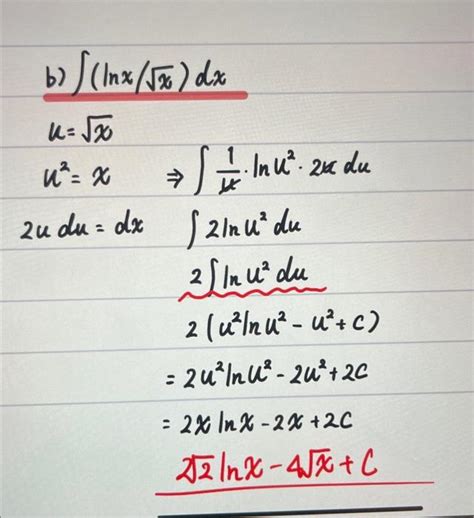 b) ∫(lnx/√x) dx
u = √x
u² = x ⇒ ∫ 1/u · ln u² · 2u du
2u du = dx ∫ 2 ln u² du
2∫ ln u² du
2 (u² ln u² - u² + C)
= 2u² ln u² - 2u² + 2C
= 2x ln x - 2x + 2C
2√2 ln x - 4√x + C